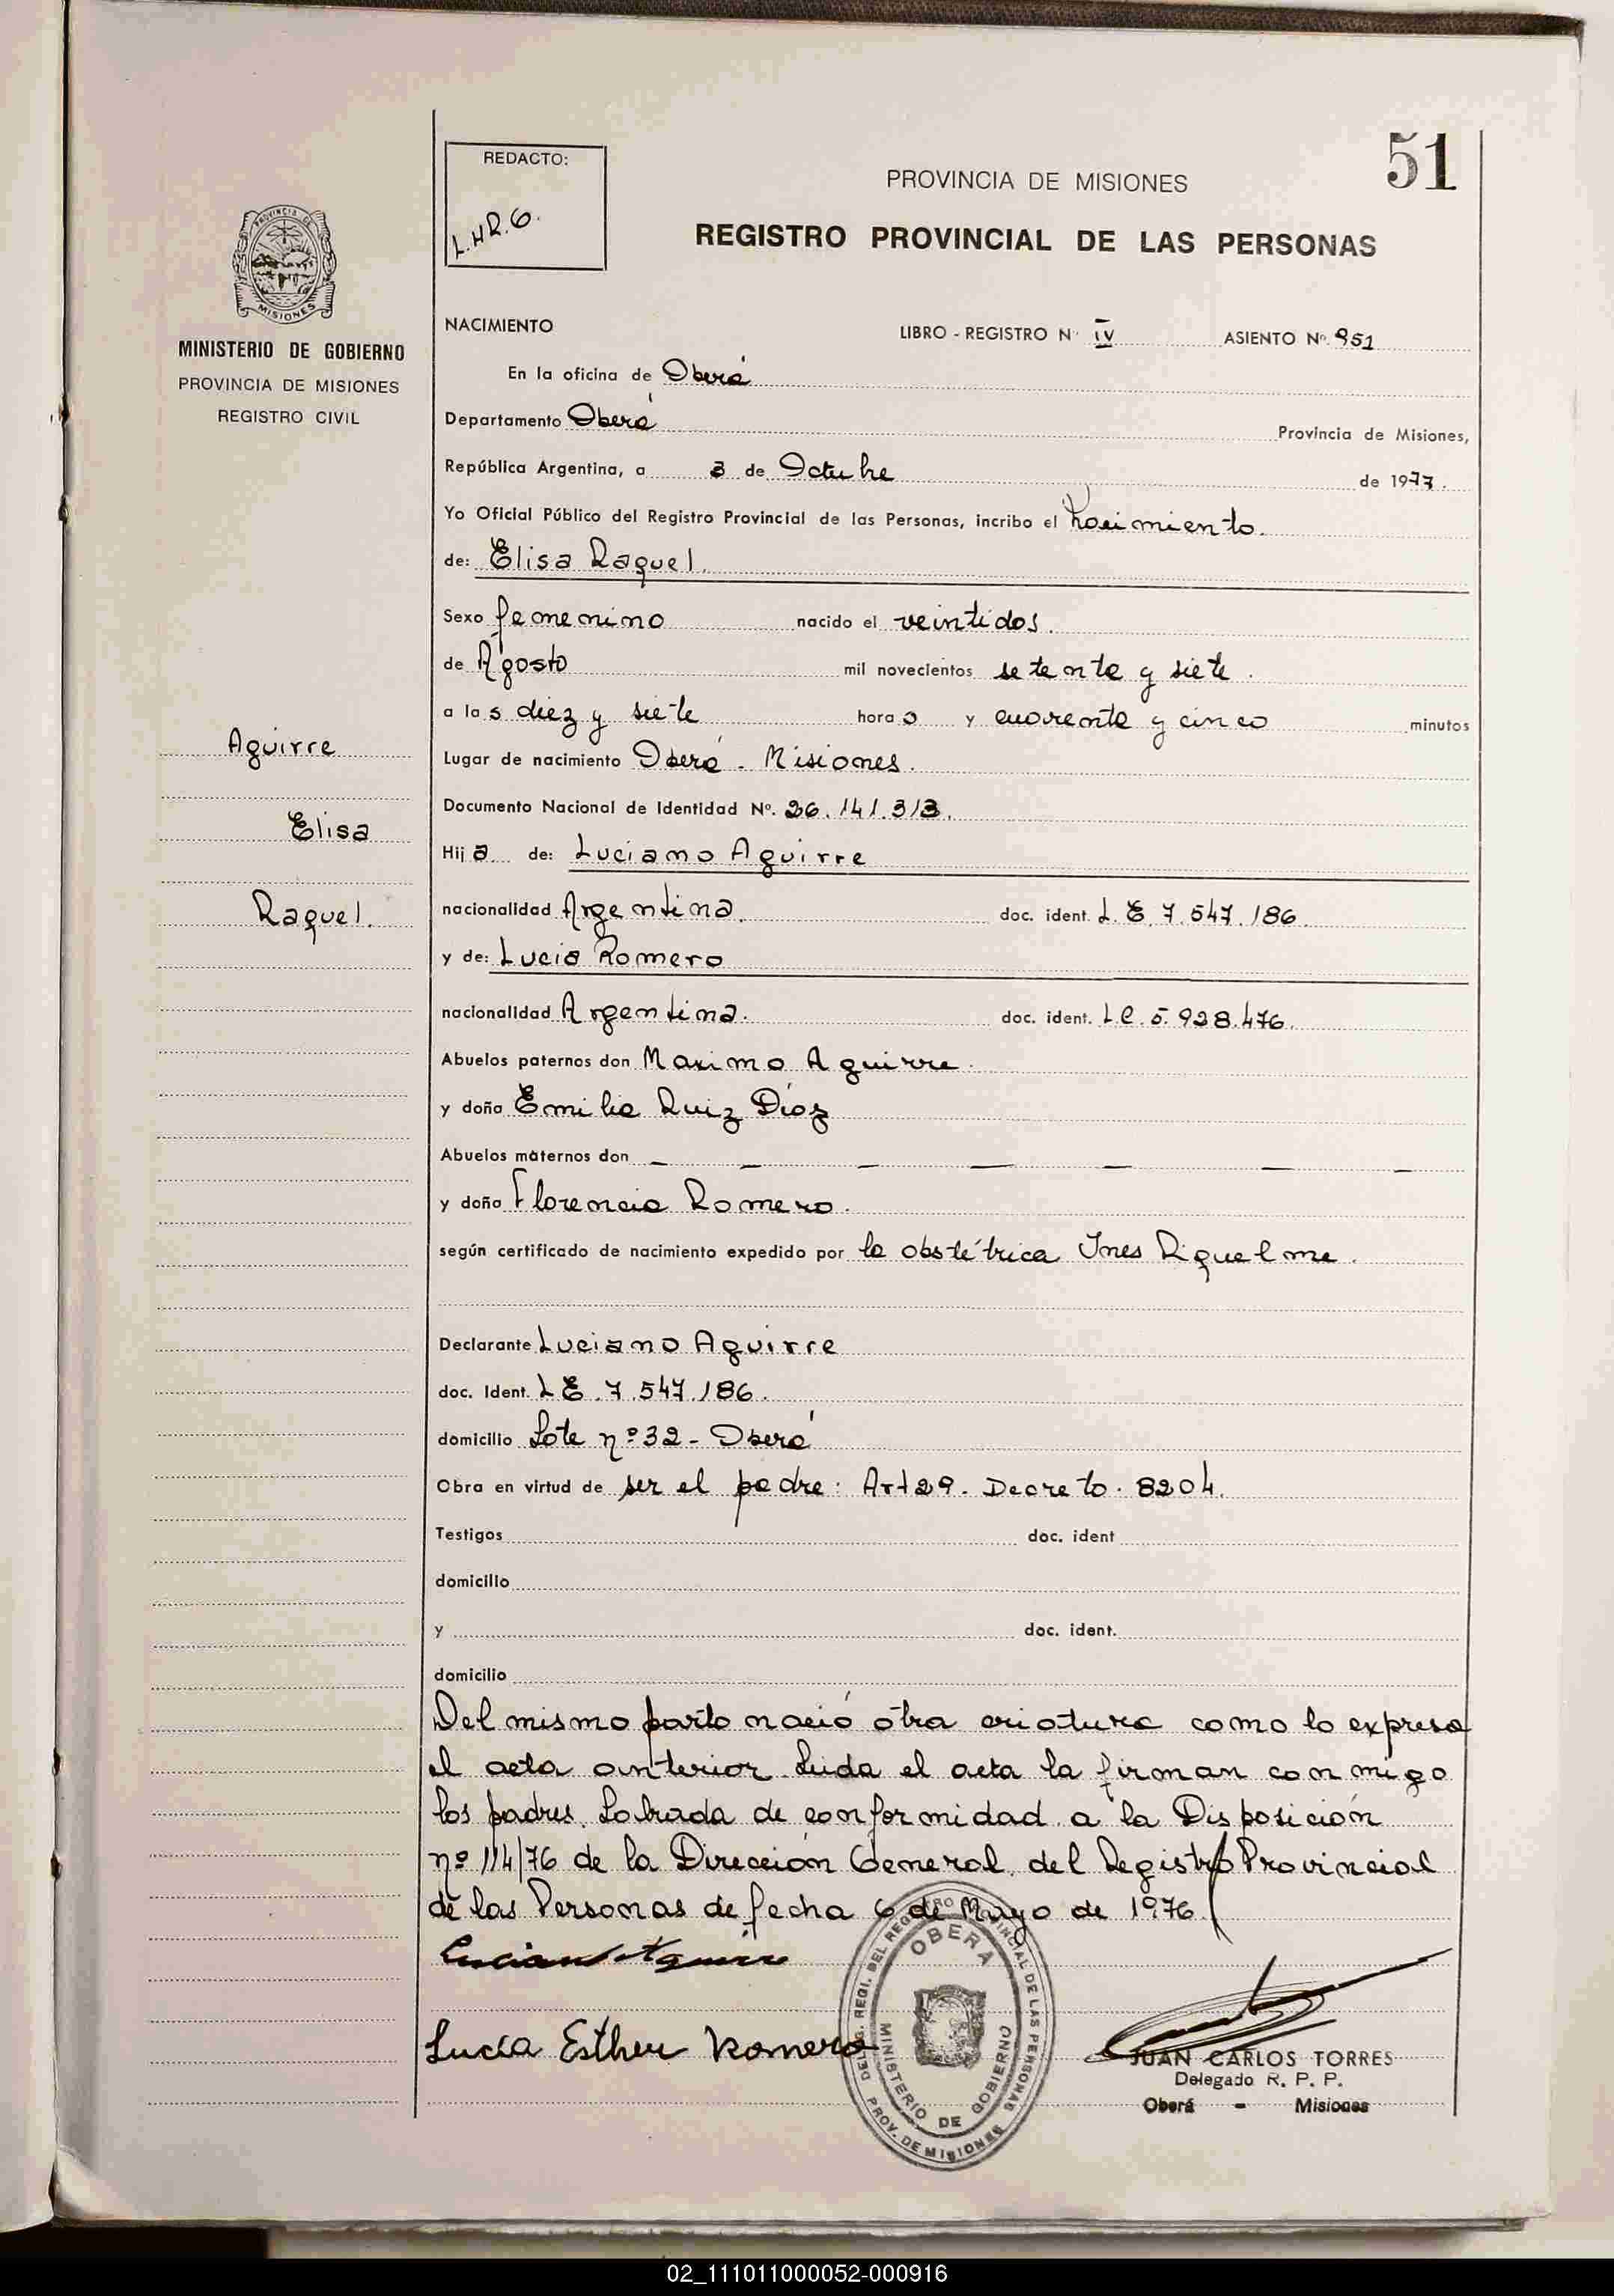 51
REDACTO:
L.H.R.G.
PROVINCIA DE MISIONES
REGISTRO PROVINCIAL DE LAS PERSONAS
PROVINCIA DE
MISIONES
MINISTERIO DE GOBIERNO
PROVINCIA DE MISIONES
REGISTRO CIVIL
Aguirre
Elisa
Raquel.
NACIMIENTO LIBRO - REGISTRO Nº IV ASIENTO Nº 951
En la oficina de Oberá
Departamento Oberá Provincia de Misiones,
República Argentina, a 3 de Octubre de 1977.
Yo Oficial Público del Registro Provincial de las Personas, incribo el Nacimiento.
de: Elisa Raquel.
Sexo femenino nacido el veintidos.
de Agosto mil novecientos setenta y siete.
a las diez y siete horas y cuarenta y cinco minutos
Lugar de nacimiento Oberá - Misiones.
Documento Nacional de Identidad Nº. 26.141.313.
Hija de: Luciano Aguirre
nacionalidad Argentina. doc. ident. L.E. 7.547.186.
y de: Lucia Romero
nacionalidad Argentina. doc. ident. L.C. 5.928.476.
Abuelos paternos don Maximo Aguirre.
y doña Emilia Ruiz Díaz
Abuelos maternos don — — — — — — —
y doña Florencia Romero.
según certificado de nacimiento expedido por la obstétrica Ines Riquelme.
Declarante Luciano Aguirre
doc. Ident. L E. 7.547.186.
domicilio Lote nº 32 - Oberá
Obra en virtud de ser el padre. Art 29. Decreto. 8204.
Testigos doc. ident
domicilio
y doc. ident.
domicilio
Del mismo parto nació otra criatura como lo expresa
el acta anterior. Leida el acta la firman conmigo
los padres. Labrada de conformidad a la Disposición
nº 114/76 de la Dirección General del Registro Provincial
de las Personas de fecha 6 de Mayo de 1976.
Luciano Aguirre
Lucía Esther Romero
DELEG. REGI. DEL REGISTRO PROVINCIAL DE LAS PERSONAS
OBERA
MINISTERIO DE GOBIERNO
PROV. DE MISIONES
JUAN CARLOS TORRES
Delegado R. P. P.
Oberá - Misiones
02_111011000052-000916